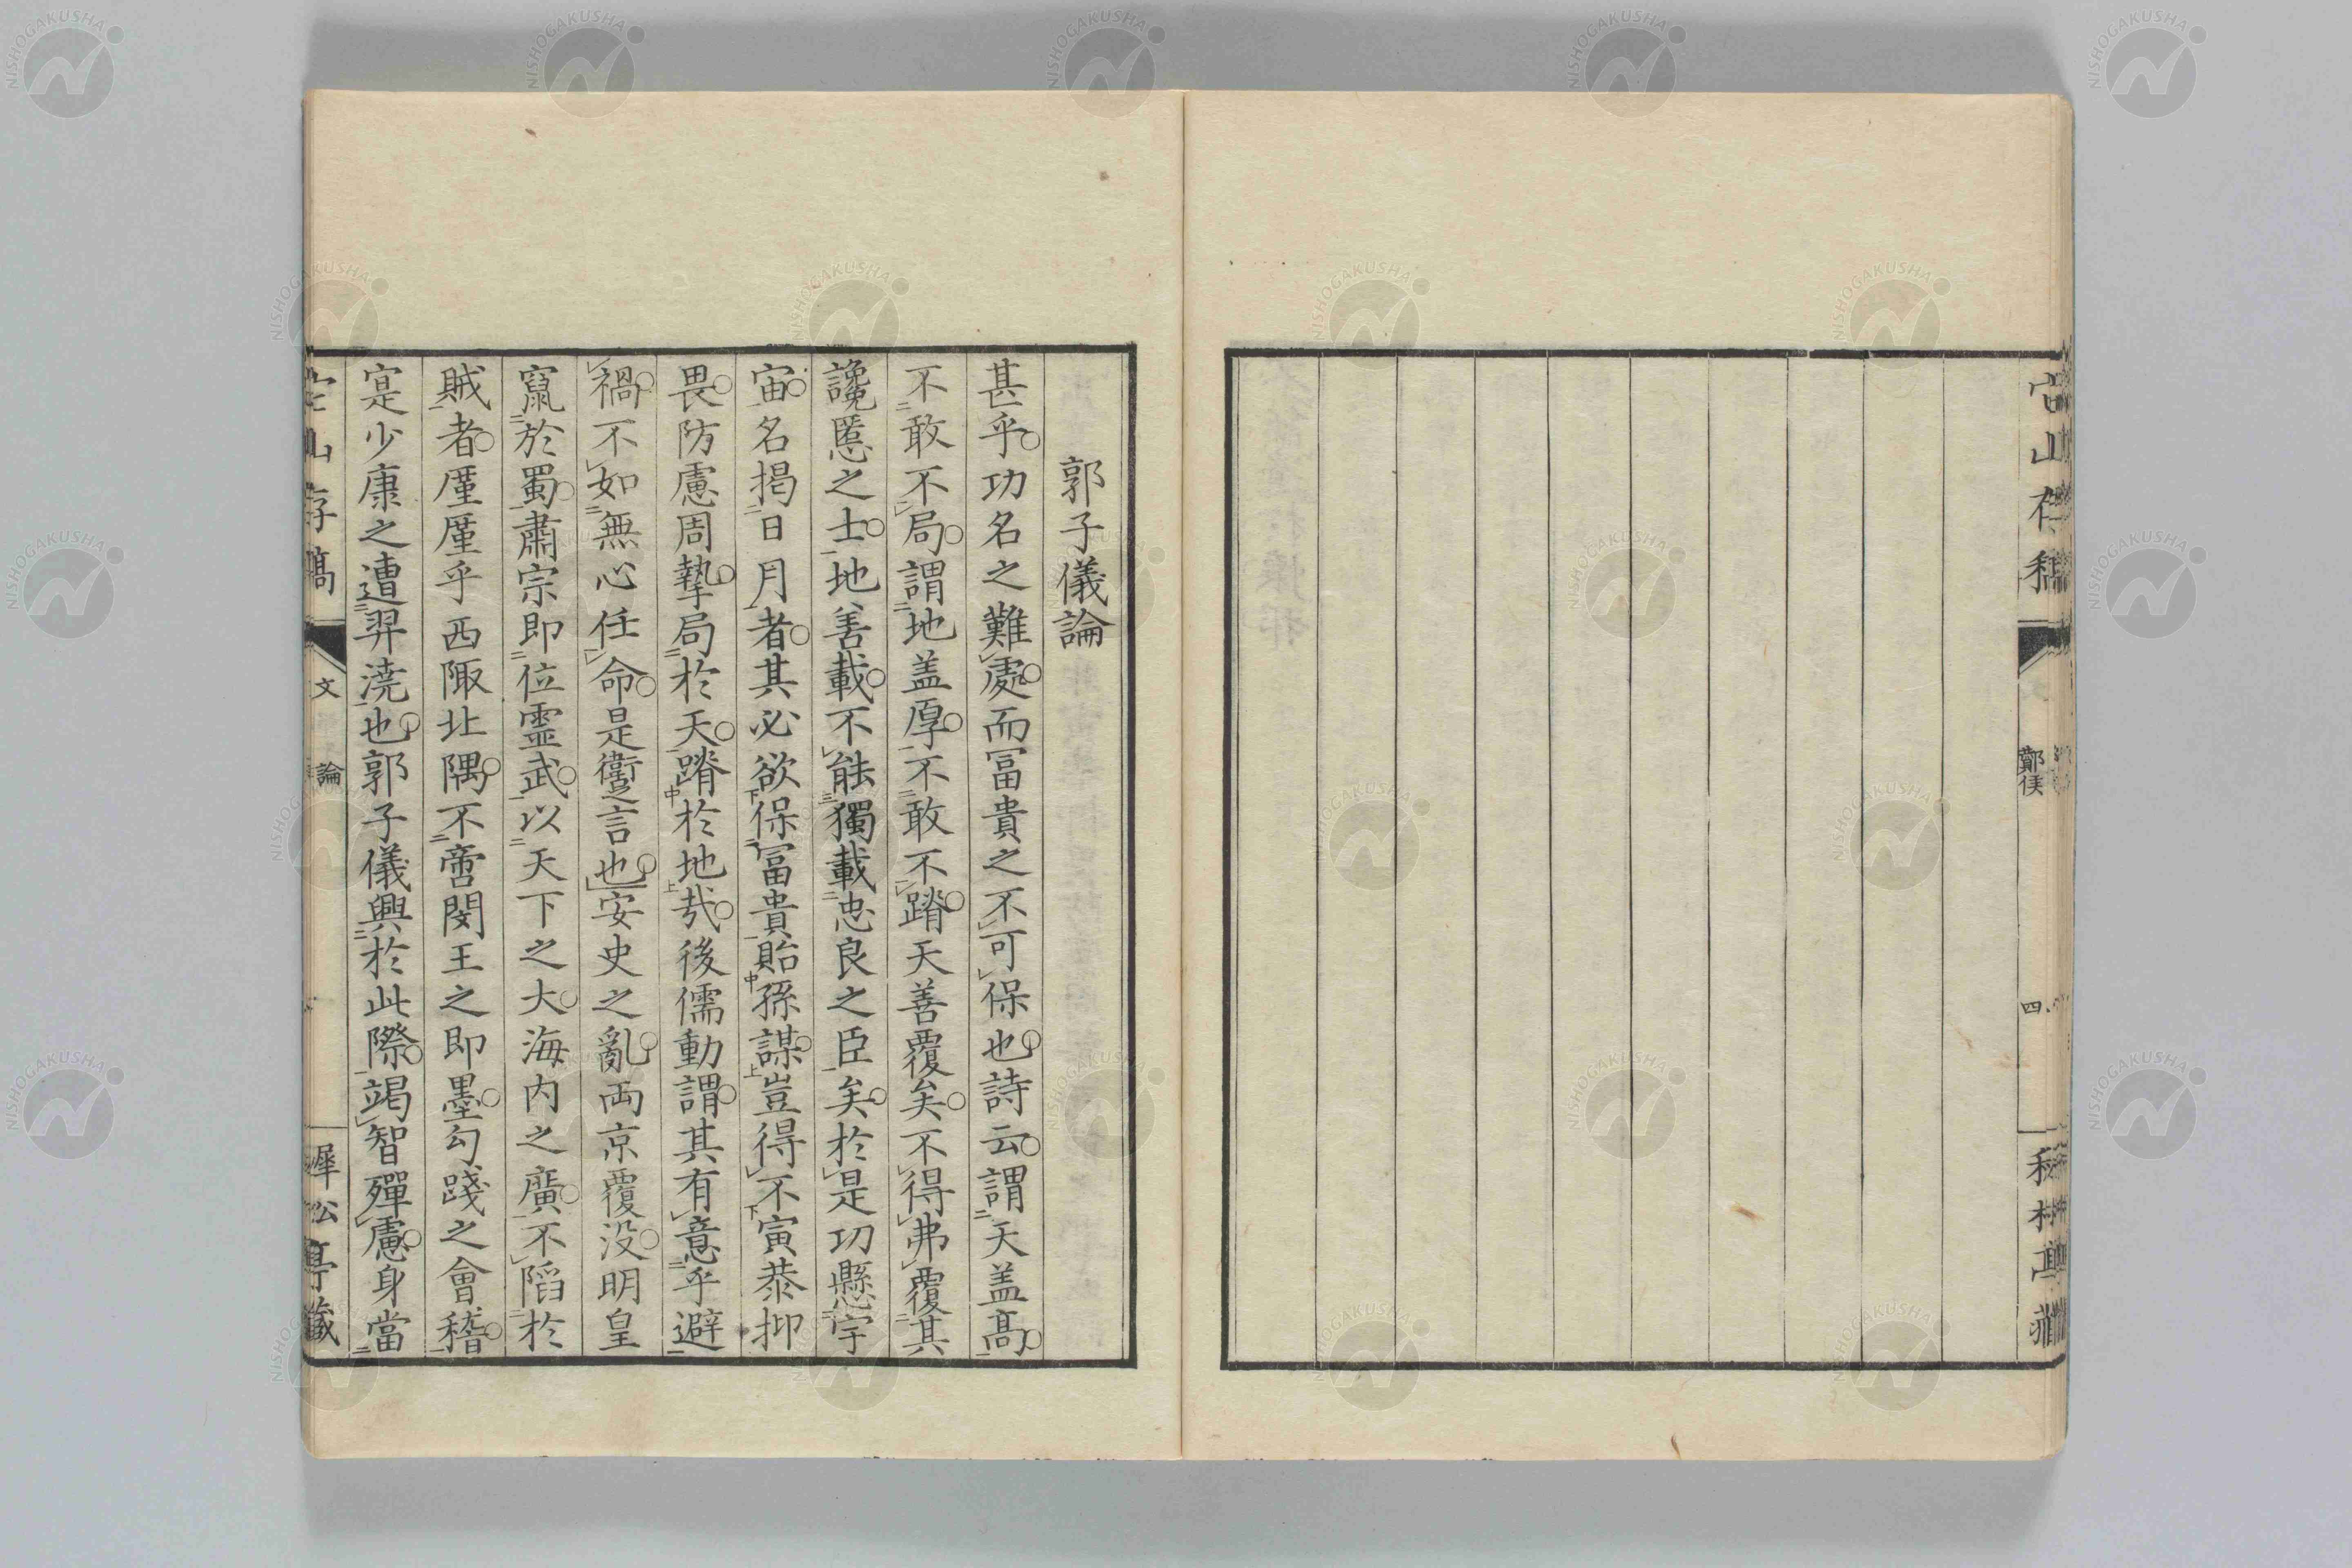 郭子儀論
甚乎功名之難處而冨貴之不可保也詩云謂天盖高
不敢不局謂地盖厚不敢不蹐天善覆矣不得弗覆其
讒慝之士地善載不能獨載忠良之臣矣於是功懸宇
宙名掲日月者其必欲保冨貴貽孫謀豈得不寅恭抑
畏防慮周摯局於天蹐於地㢤後儒動謂其有意乎避
禍不如無心任命是躗言也安史之亂両京覆没明皇
竄於蜀肅宗即位霊武以天下之大海内之廣不陷於
賊者厪厪乎西陬北隅不啻閔王之即墨勾踐之會稽
寔少康之遭羿澆也郭子儀興於此際竭智殫慮身當
文
論
四
NISHOGAKUSHA